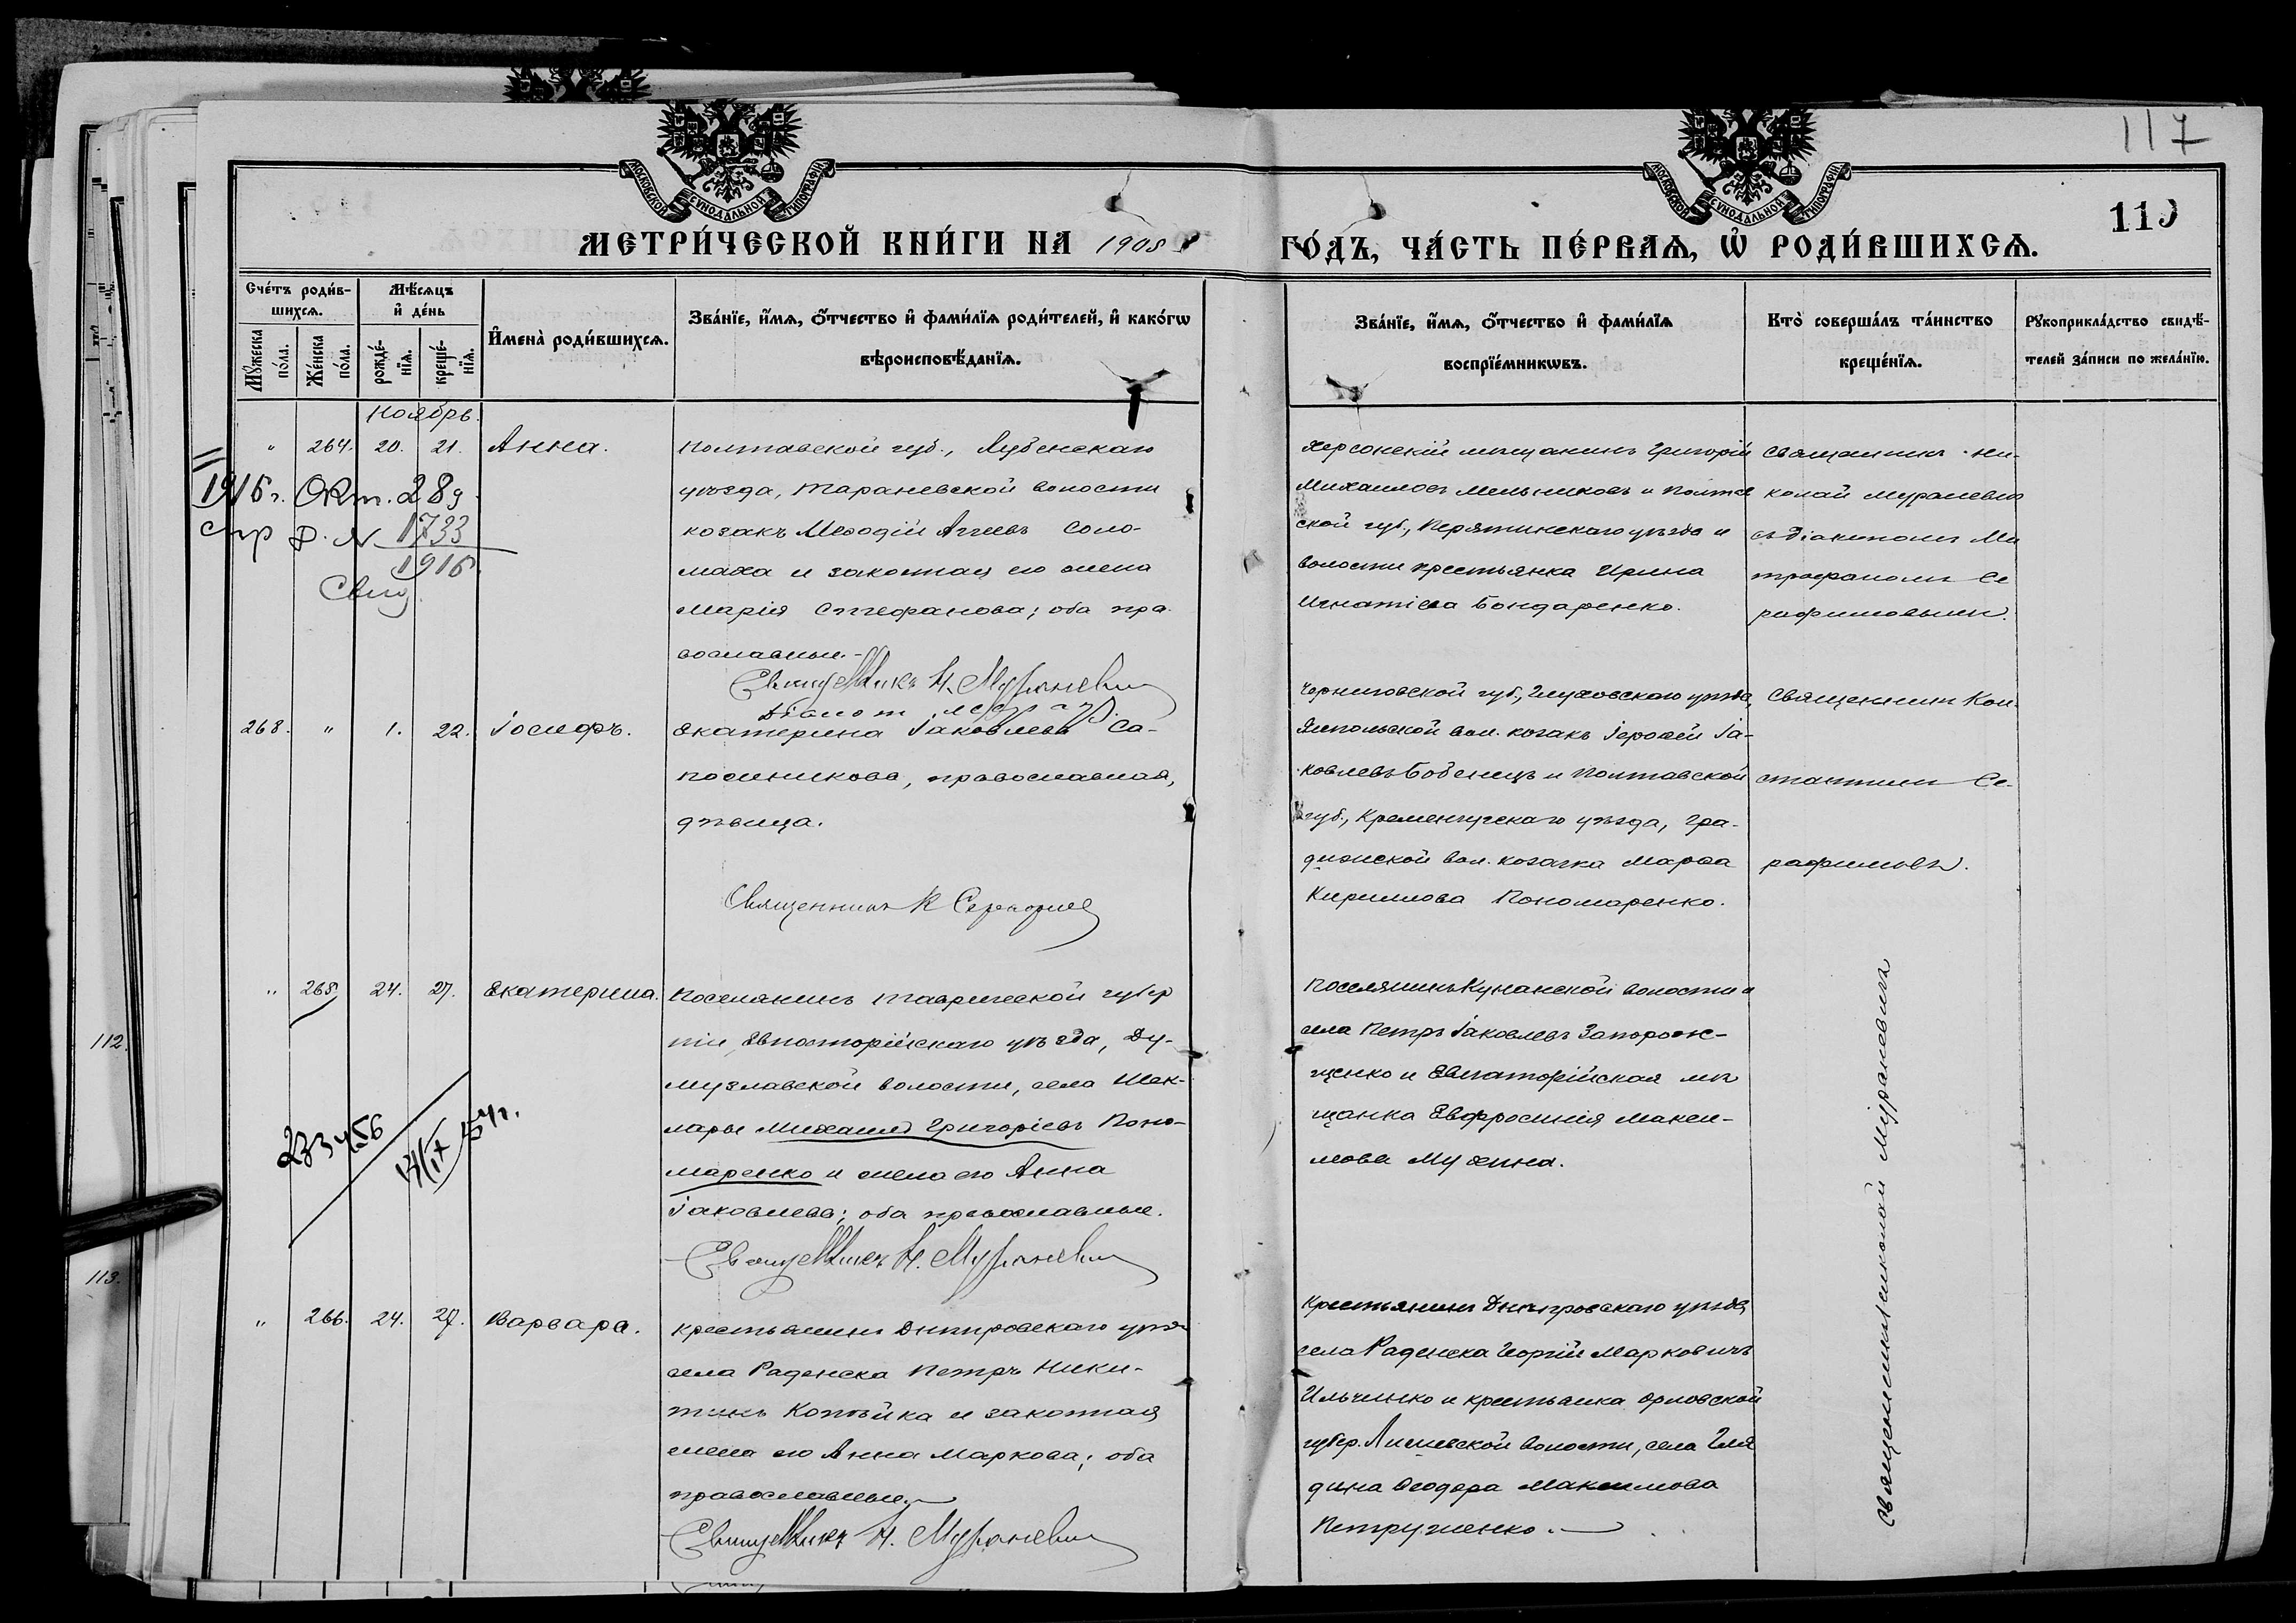 117
110
МОСКОВСКОЙ СѴНОДАЛЬНОЙ ТИПОГРАФІИ
МОСКОВСКОЙ СѴНОДАЛЬНОЙ ТИПОГРАФІИ
МЕТРИ́ЧЕСКОЙ КНИ́ГИ НА 1908
ГО́ДЪ, ЧА́СТЬ ПЕ́РВАѦ, Ѽ РОДИ́ВШИХСѦ.
Сче́тъ роди́в-
шихсѧ.
Мѣ́сѧцъ
и҆ де́нь
Мꙋ́жеска по́ла.
Же́нска по́ла.
рожде́-
нїѧ.
креще́-
нїѧ.
И҆мена̀ роди́вшихсѧ.
Зва́нїе, и҆́мѧ, ѻ҆́тчество и҆ фами́лїѧ роди́телей, и҆ како́гѡ
вѣроисповѣ́данїѧ.
Зва́нїе, и҆́мѧ, ѻ҆́тчество и҆ фами́лїѧ
воспрїе́мникѡвъ.
Кто̀ соверша́лъ та́инство
креще́нїѧ.
Рꙋкоприкла́дство свидѣ́-
телей за́писи по жела́нїю.
Ноябрь.
" 264. 20. 21. Анна.
Полтавской губ., Лубенскаго
уѣзда, Тараневской волости
козакъ Меѳодій Аггеевъ Соло-
маха и законная его жена
Марія Стефанова; оба пра-
вославные.-
Священникъ Н. Мураневич
Херсонскій мѣщанинъ Григорій
Михаиловъ Мельниковъ и Полтав
ской губ., Пирятинскаго уѣзда и
волости крестьянка Ирина
Игнатіева Бондаренко.
Священникъ Ни-
колай Мураневич
съ діакономъ Ми
трофаномъ Се
рафимовымъ.
1916 г. Окт. 28 д
N 1733
1916
Свид.
268. " 1. 22. Іосифъ.
Екатерина Іаковлева Са-
пожникова, православная,
дѣвица.
Священникъ К Серафимов
Черниговской губ., Глуховскаго уѣзда,
Ямпольской вол. козакъ Іероѳей Іа-
ковлевъ Бобенецъ и Полтавской
губ., Кременчугскаго уѣзда, Гра-
дижской вол. козачка Марѳа
Кириллова Пономаренко.
Священникъ Кон-
стантинъ Се-
рафимовъ.
" 265. 24. 27. Екатерина.
Поселянинъ Таврической губер
ніи, Евпаторійскаго уѣзда, Ду-
музлавской волости, села Шек-
лары Михаилъ Григоріевъ Поно-
маренко и жена его Анна
Іаковлева; оба православные.
Священникъ Н. Мураневич
Поселянинъ Кунанской волости и
села Петръ Іаковлевъ Запорож-
щенко и Евпаторійская мѣ
щанка Евфросинія Макси-
мова Мухина.
112.
113.
" 266. 24. 27. Варвара.
Крестьянинъ Днѣпровскаго уѣз.
села Раденска Петръ Ники-
тинъ Копѣйка и законная
жена его Анна Маркова; оба
православные.
Священникъ Н. Мураневич
Крестьянинъ Днѣпровскаго уѣзда
села Раденска Георгій Марковичъ
Ильченко и крестьянка Орловской
губер. волости, села Гля
дина Ѳеодора Максимова
Священникъ Николай Мураневичъ